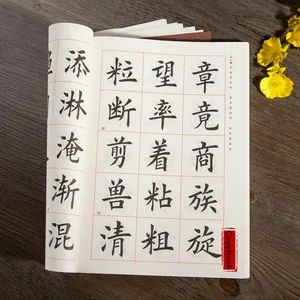 章竟商族旋
望率着粘粗
粒断剪兽清
添淋淹渐混